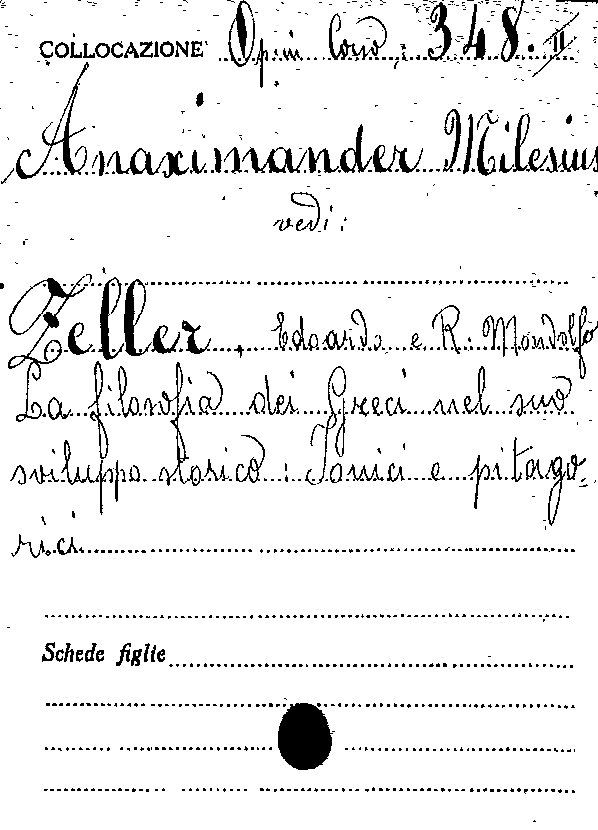 COLLOCAZIONE Opini Cons; 348.II
Anaximander Milesius
vedi:
Zeller, Edoardo e R. Mondolfo
La filosofia dei Greci nel suo
sviluppo storico: Ionici e pitago-
rici
Schede figlie